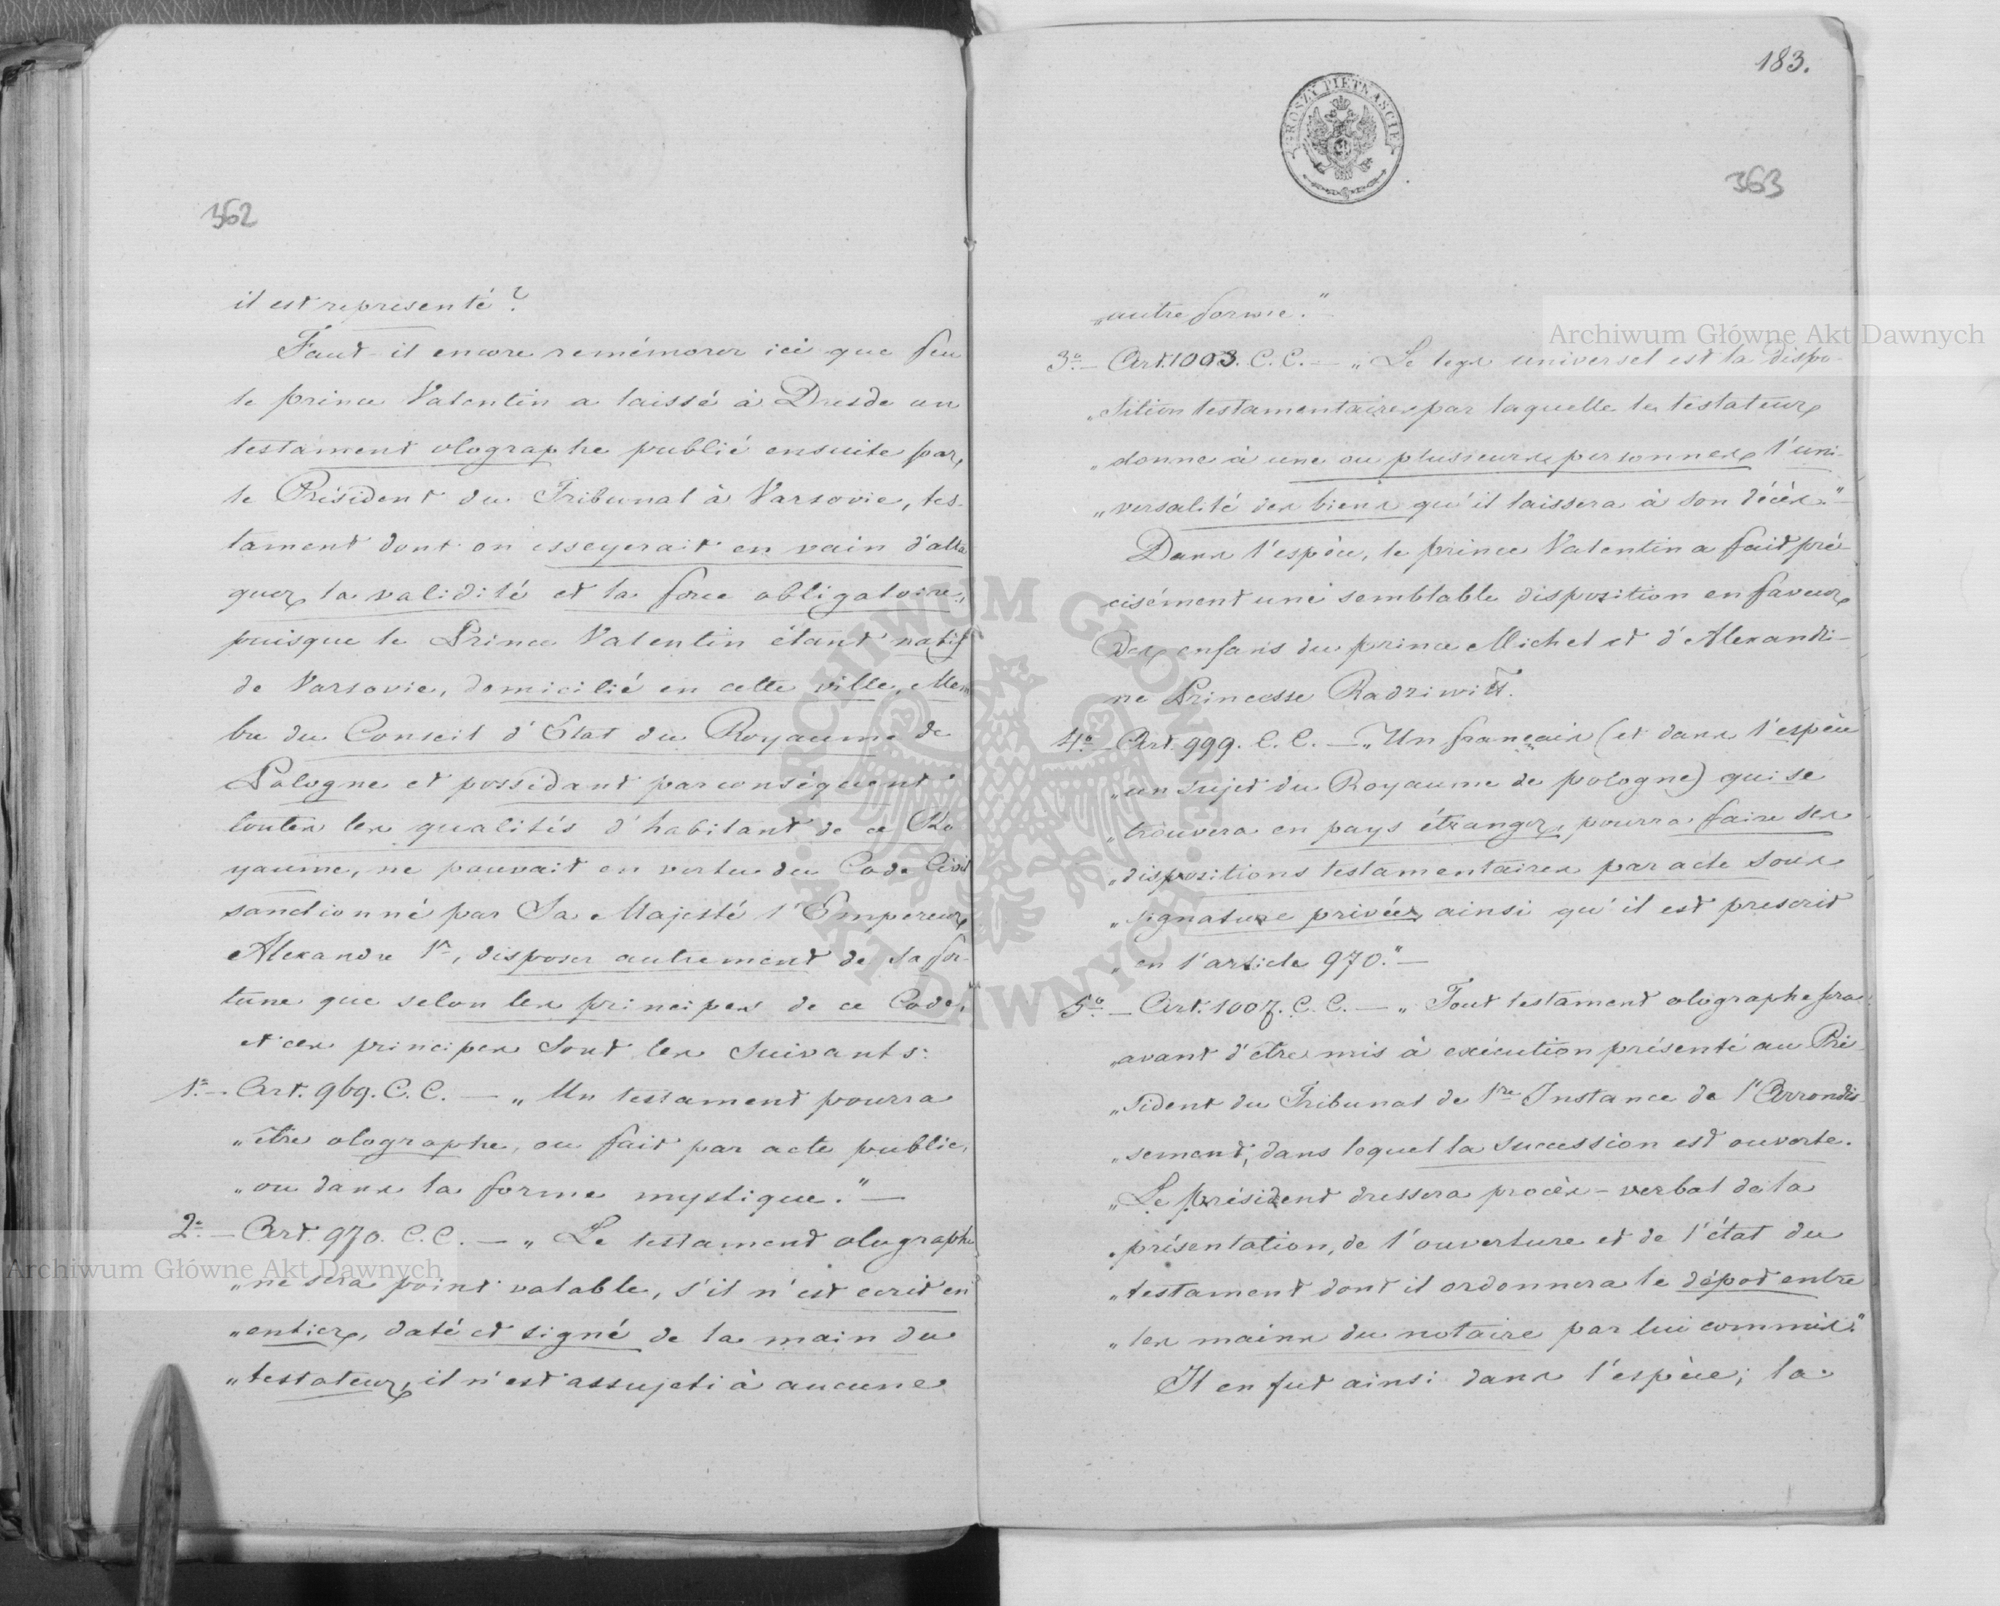 362
il est représenté?
Faut-il encore remémorer ici que feu
le prince Valentin a laissé à Dresde un
testament olographe publié ensuite par,
le Président du Tribunal à Varsovie, tes-
tament dont on esseyerait en vain d'atta
quer la validité et la force obligatoire,
puisque le Prince Valentin étant natif
de Varsovie, domicilié en cette ville, Mem
bre du Conseil d'Etat du Royaume de
Pologne et possédant parconséquent
toutes les qualités d'habitant de ce Ro
yaume, ne pouvait en vertu du Code Civil
sanctionné par Sa Majesté l'Empereur
Alexandre 1r, disposer autrement de sa for-
tune que selon les principes de ce Code,
et ces principes sont les suivants:
1o — Art. 969. C. C. — „Un testament pourra
„être olographe, ou fait par acte public,
„ou dans la forme mystique." —
2o — Art. 970. C. C. — „Le testament olographe
„ne sera point valable, s'il n'est ecrit en
„entier, daté et signé de la main du
„testateur, il n'est assujeti à aucune
183.
GROSZY PIETNASCIE
363
„autre forme."
3o — Art. 1003. C. C. — „Le legs universel est la dispo-
„sition testamentaires par laquelle le testateur
„donne à une ou plusieurs personnes l'uni-
„versalité des biens qu'il laissera à son décès." —
Dans l'espèce, le prince Valentin a fait pré-
cisément une semblable disposition en faveur
Des enfans du prince Michel et d'Alexandri-
ne Princesse Radziwiłł.
4o — Art. 999. C. C. — „Un français (et dans l'espèce
„un sujet du Royaume de pologne) qui se
„trouvera en pays étranger, pourra faire ses
„dispositions testamentaires par acte sous
„signature privées ainsi qu'il est prescrit
„en l'article 970." —
5o — Art. 1007. C. C. — „Tout testament olographe sera
„avant d'être mis à exécution présenté au Pré-
„sident du Tribunal de 1re Instance de l'Arrondis-
„sement, dans lequel la succession est ouverte.
„Le président dressera procès-verbal de la
„présentation, de l'ouverture et de l'état du
„testament dont il ordonnera le dépot entre
„les mains du notaire par lui commis."
Il en fut ainsi dans l'espèce; la
Archiwum Główne Akt Dawnych
Archiwum Główne Akt Dawnych
ARCHIWUM GŁÓWNE AKT DAWNYCH